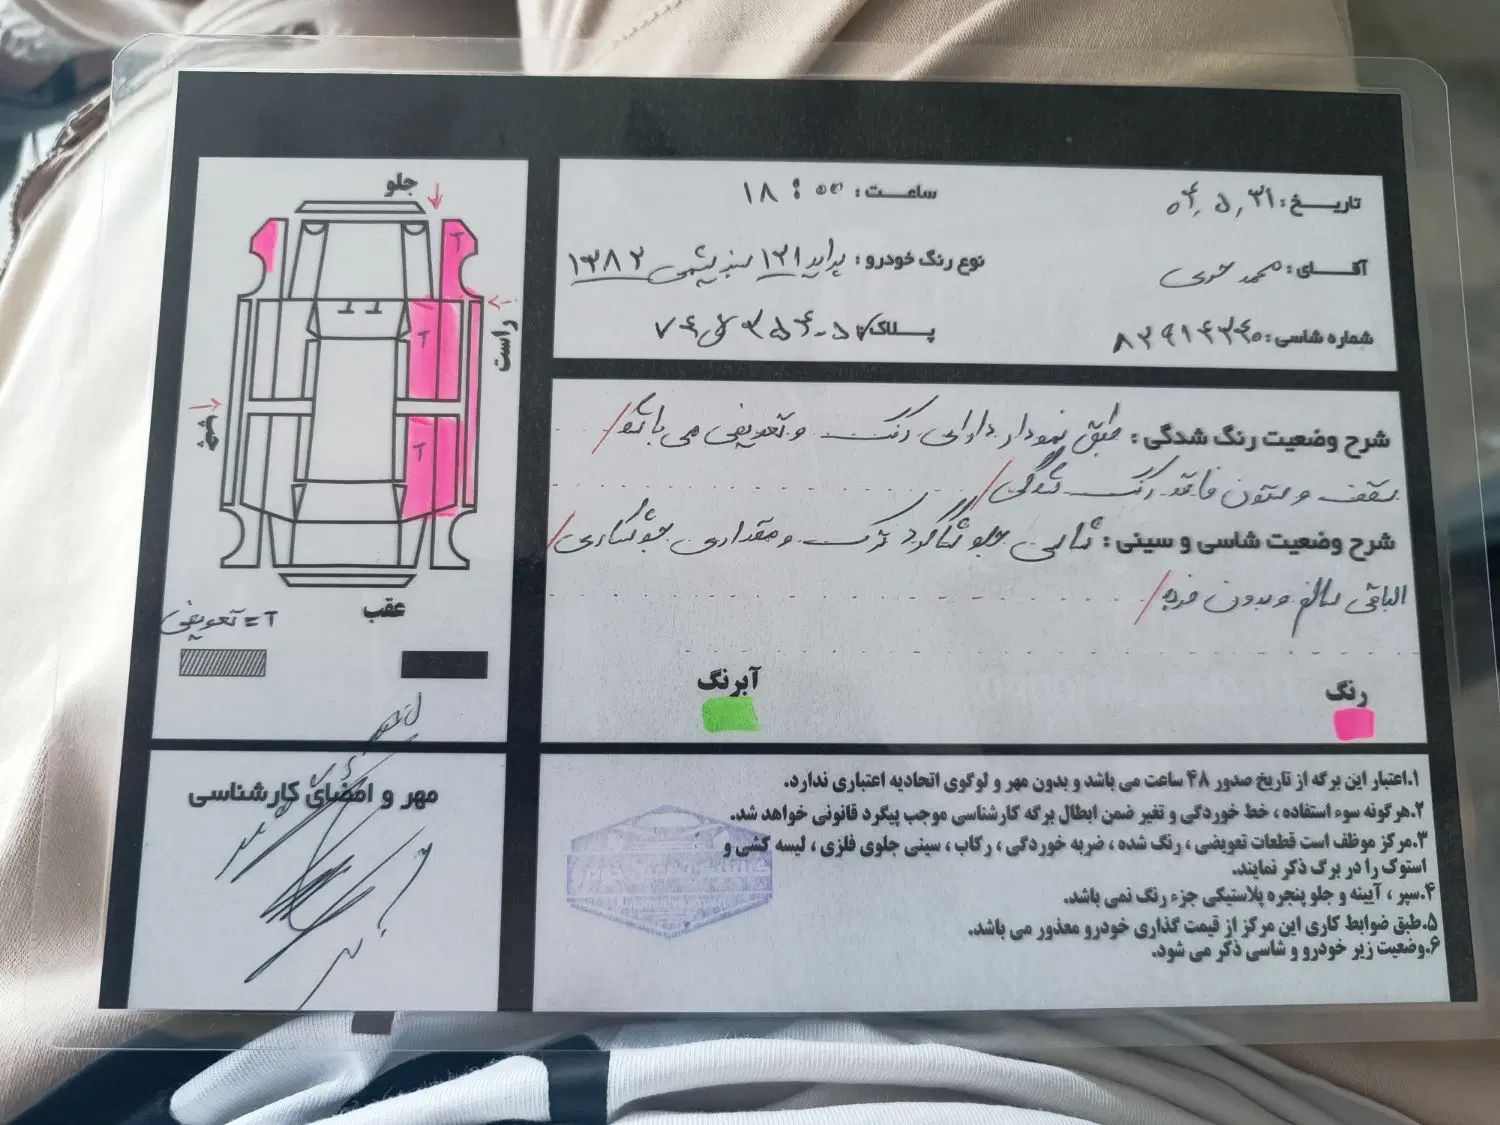 تاریخ: ۰۴٫۵٫۳۱
ساعت: ۱۸:۰۰
آقای: محمد
نوع رنگ خودرو: پراید ۱۳۱ سبز یشمی ۱۳۸۲
شماره شاسی:
پلاک:
شرح وضعیت رنگ شدگی: طبق نمودار دارای رنگ و تعویض می باشد/
سقف و ستون فاقد رنگ شدگی/
شرح وضعیت شاسی و سینی: شاسی جلو شاگرد ترک و مقداری جوشکاری/
الباقی سالم و بدون ضربه/
رنگ
آبرنگ
۱.اعتبار این برگه از تاریخ صدور ۴۸ ساعت می باشد و بدون مهر و لوگوی اتحادیه اعتباری ندارد.
۲.هرگونه سوء استفاده ، خط خوردگی و تغیر ضمن ابطال برگه کارشناسی موجب پیگرد قانونی خواهد شد.
۳.مرکز موظف است قطعات تعویضی ، رنگ شده ، ضربه خوردگی ، رکاب ، سینی جلوی فلزی ، لیسه کشی و
استوک را در برگ ذکر نمایند.
۴.سپر ، آیینه و جلو پنجره پلاستیکی جزء رنگ نمی باشد.
۵.طبق ضوابط کاری این مرکز از قیمت گذاری خودرو معذور می باشد.
۶.وضعیت زیر خودرو و شاسی ذکر می شود.
جلو
T
راست
T
T
عقب
T = تعویض
مهر و امضای کارشناسی